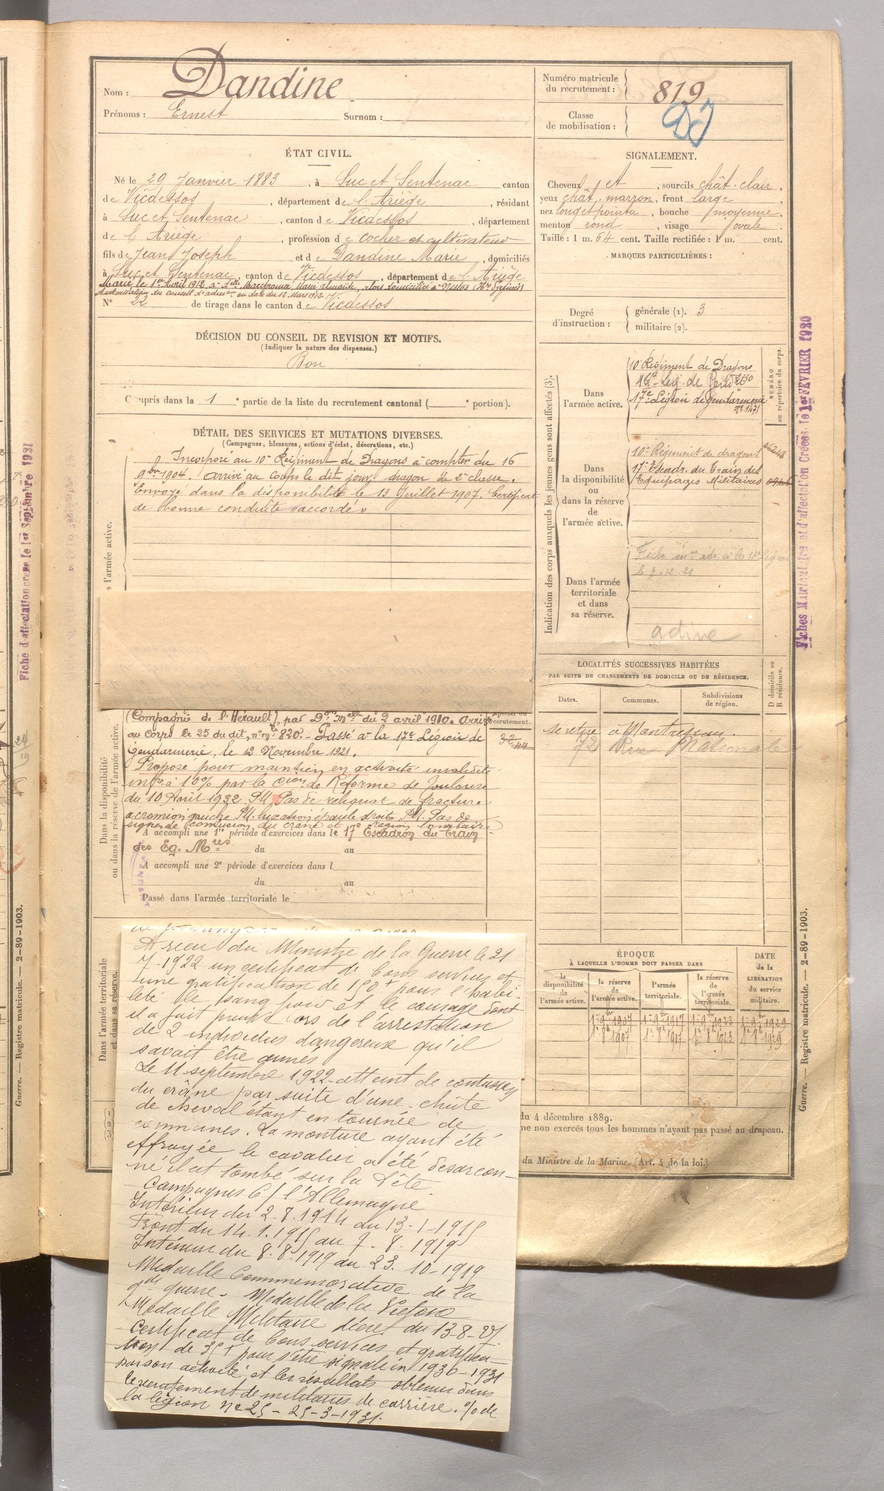 Nom : Dandine
Prénoms : Ernest Surnom :
Numéro matricule du recrutement : 819
Classe de mobilisation :
ÉTAT CIVIL.
Né le 29 Janvier 1883, à Suc et Sentenac canton
de Vicdessos, département de l'Ariège, résidant
à Suc et Sentenac, canton de Vicdessos, département
de l'Ariège, profession de cocher et cultivateur
fils de Jean Joseph et de Dandine Marie, domiciliés
à Suc et Sentenac, canton de Vicdessos, département de l'Ariège
Marié le 1er Avril 1912 à
N° 22 de tirage dans le canton de Vicdessos
SIGNALEMENT.
Cheveux chât, sourcils chât. clair,
yeux chât. marron, front large
nez long et pointu, bouche moyenne,
menton rond, visage ovale.
Taille : 1 m. 64 cent. Taille rectifiée : 1 m. cent.
MARQUES PARTICULIÈRES :
Degré d'instruction : générale (1). 3
militaire (2).
DÉCISION DU CONSEIL DE REVISION ET MOTIFS.
(Indiquer la nature des dispenses.)
Bon
Compris dans la 1e partie de la liste du recrutement cantonal ( e portion).
DÉTAIL DES SERVICES ET MUTATIONS DIVERSES.
(Campagnes, blessures, actions d'éclat, décorations, etc.)
Incorporé au 10e Régiment de Dragons à compter du 16
9bre 1904. Arrivé au corps le dit jour, dragon de 2e classe.
Envoyé dans la disponibilité le 13 Juillet 1907. Certificat
de bonne conduite accordé.
s l'armée active.
Indication des corps auxquels les jeunes gens sont affectés (3).
Dans l'armée active.
10e Régiment de Dragons
17e Légion de Gendarmerie
NUMÉRO au répertoire du corps.
Dans la disponibilité ou dans la réserve de l'armée active.
10e Régiment de dragons
17e Escadr. du Train des
Equipages Militaires
Dans l'armée territoriale et dans sa réserve.
LOCALITÉS SUCCESSIVES HABITÉES
PAR SUITE DE CHANGEMENTS DE DOMICILE OU DE RÉSIDENCE.
Dates. Communes. Subdivisions de région. D domicile ou R résidence.
se retire à Montréjeau
72 Rue Nationale
Dans la disponibilité ou dans la réserve de l'armée active.
(Compagnie de l'Hérault) par Don Mlle du 2 avril 1910. Arrivé
au corps le 25 du dit, no mle 820. Passé à la 17e Légion de
Gendarmerie, le 12 Novembre 1921.
Proposé pour maintien en activité invalidité
infre à 10% par la Cion de Réforme de Toulouse
du 10 Août 1932 Pas de reliquat de fracture
acromion gauche luxation épaule droite Pas de
A accompli une 1re période d'exercices dans le 17e Escadron du Train
des Eq. Mres du au
A accompli une 2e période d'exercices dans l
du au
Passé dans l'armée territoriale le
Dans l'armée territoriale et dans sa réserve.
ÉPOQUE
À LAQUELLE L'HOMME DOIT PASSER DANS
la disponibilité de l'armée active. la réserve de l'armée active. l'armée territoriale. la réserve de l'armée territoriale.
DATE de la LIBÉRATION du service militaire.
du 4 décembre 1889.
me non exercés tous les hommes n'ayant pas passé au drapeau.
du Ministre de la Marine. (Art. 4 de la loi.)
A reçu du Ministre de la Guerre le 21
7-1922 un certificat de bons services et
une gratification de 150f pour l'habi-
leté le sang froid et le courage dont
il a fait preuve lors de l'arrestation
de 2 individus dangereux qu'il
savait être armés
Le 11 septembre 1922 atteint de contusion
du crâne par suite d'une chute
de cheval étant en tournée de
communes. La monture ayant été
effrayée le cavalier a été désarçon-
né il est tombé sur la tête
Campagnes C/ l'Allemagne
Intérieur du 2.8.1914 au 13-1-1915
Front du 14.1.1915 au 7.8.1919
Intérieur du 8.8.1919 au 23.10.1919
Médaille Commémorative de la
gde guerre. Médaille de la Victoire
Médaille Militaire décret du 13-8-27
Certificat de bons services et gratifica-
tion de 35f pour s'être signalé en 1930-1931
par son activité et les résultats obtenus dans
le recrutement de militaires de carrière. O/ de
la légion no 25 - 25-3-1931.
Fiche d'affectation créée le 1er Septembre 1931
Guerre. — Registre matricule. — 2-89-1903.
Guerre. — Registre matricule. — 2-89-1903.